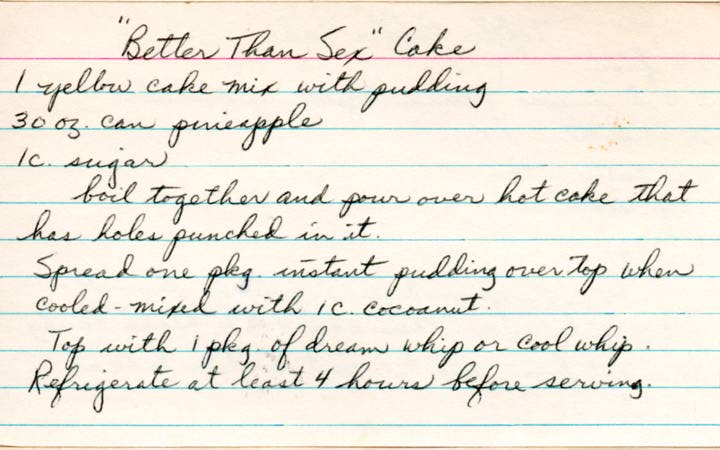 "Better Than Sex" Cake
1 yellow cake mix with pudding
30 oz. can pineapple
1c. sugar
boil together and pour over hot cake that
has holes punched in it.
Spread one pkg. instant pudding over top when
cooled - mixed with 1c. cocoanut.
Top with 1 pkg. of dream whip or cool whip.
Refrigerate at least 4 hours before serving.